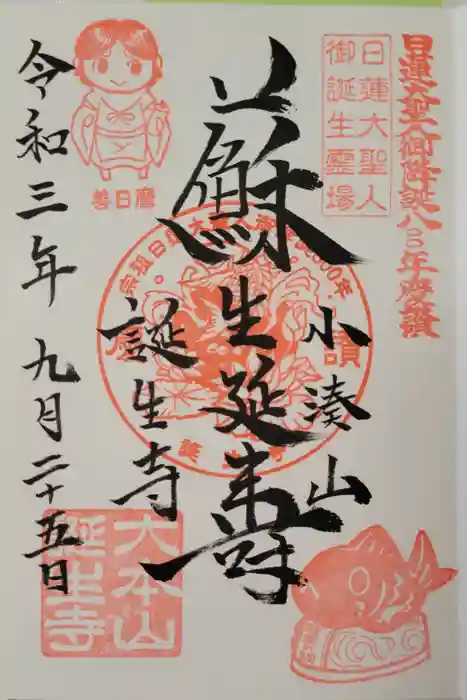 日蓮大聖人御降誕八〇〇年慶讃
日蓮大聖人
御誕生霊場
小湊山
蘇生延寿
誕生寺
令和三年 九月二十五日
善日麿
大本山
誕生寺